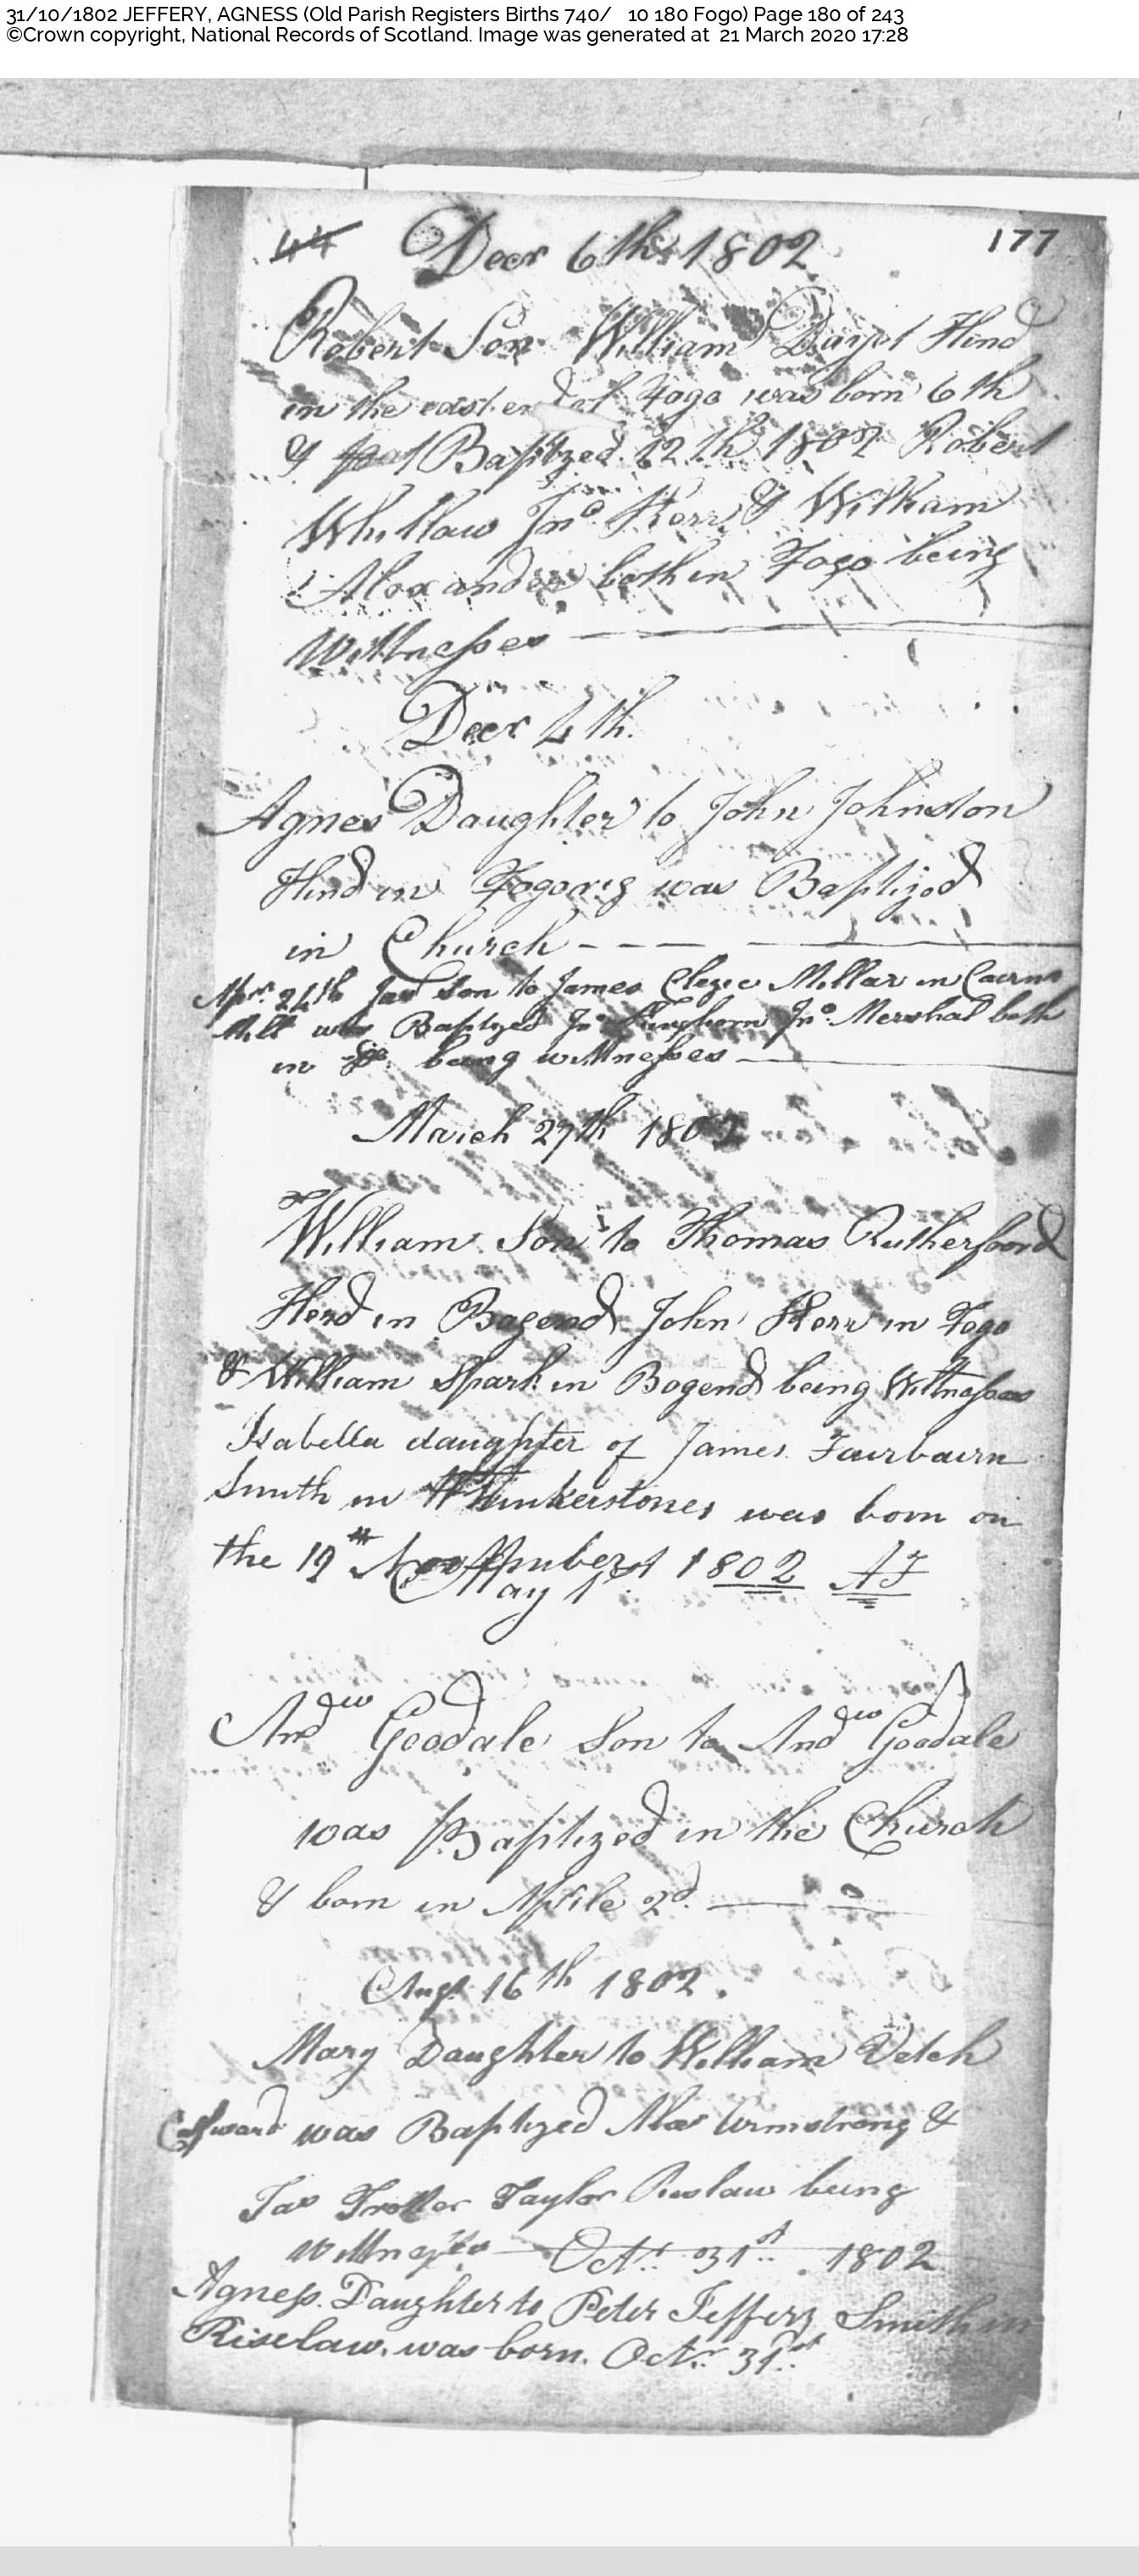 31/10/1802 JEFFERY, AGNESS (Old Parish Registers Births 740/ 10 180 Fogo) Page 180 of 243
©Crown copyright, National Records of Scotland. Image was generated at 21 March 2020 17:28
44 Decr 6th 1802 177
Robert Son William Hind
in the east end of Fogo was born 6th
& Baptized 12th 1802 Robert
Whitlaw Jno Kerr & William
Alexander both in Fogo being
Wittnesses
Decr 4th
Agnes Daughter to John Johnston
Hind in Fogorig was Baptized
in Church
24th Jas Son to James Millar in Cairns
Mill was Baptized Jno Jno Mershal both
in being wittnesses
March 27th 1802
William Son to Thomas Rutherfoord
Herd in Bogend John Kerr in Fogo
& William Spark in Bogend being Wittnesses
Isabella daughter of James Fairbairn
Smith in Whinkerstones was born on
the 19th November 1802 AF
May 1st
Andw Goodale Son to Andw Goodale
was Baptized in the Church
& born in Aprile 2d
Augt 16th 1802.
Mary Daughter to William Vetch
was Baptized Alexr Armstrong &
Jas Trotter Taylor Rislaw being
wittnesses Octr 31st 1802
Agness Daughter to Peter Jeffery Smith in
Riselaw. was born. Octr 31st